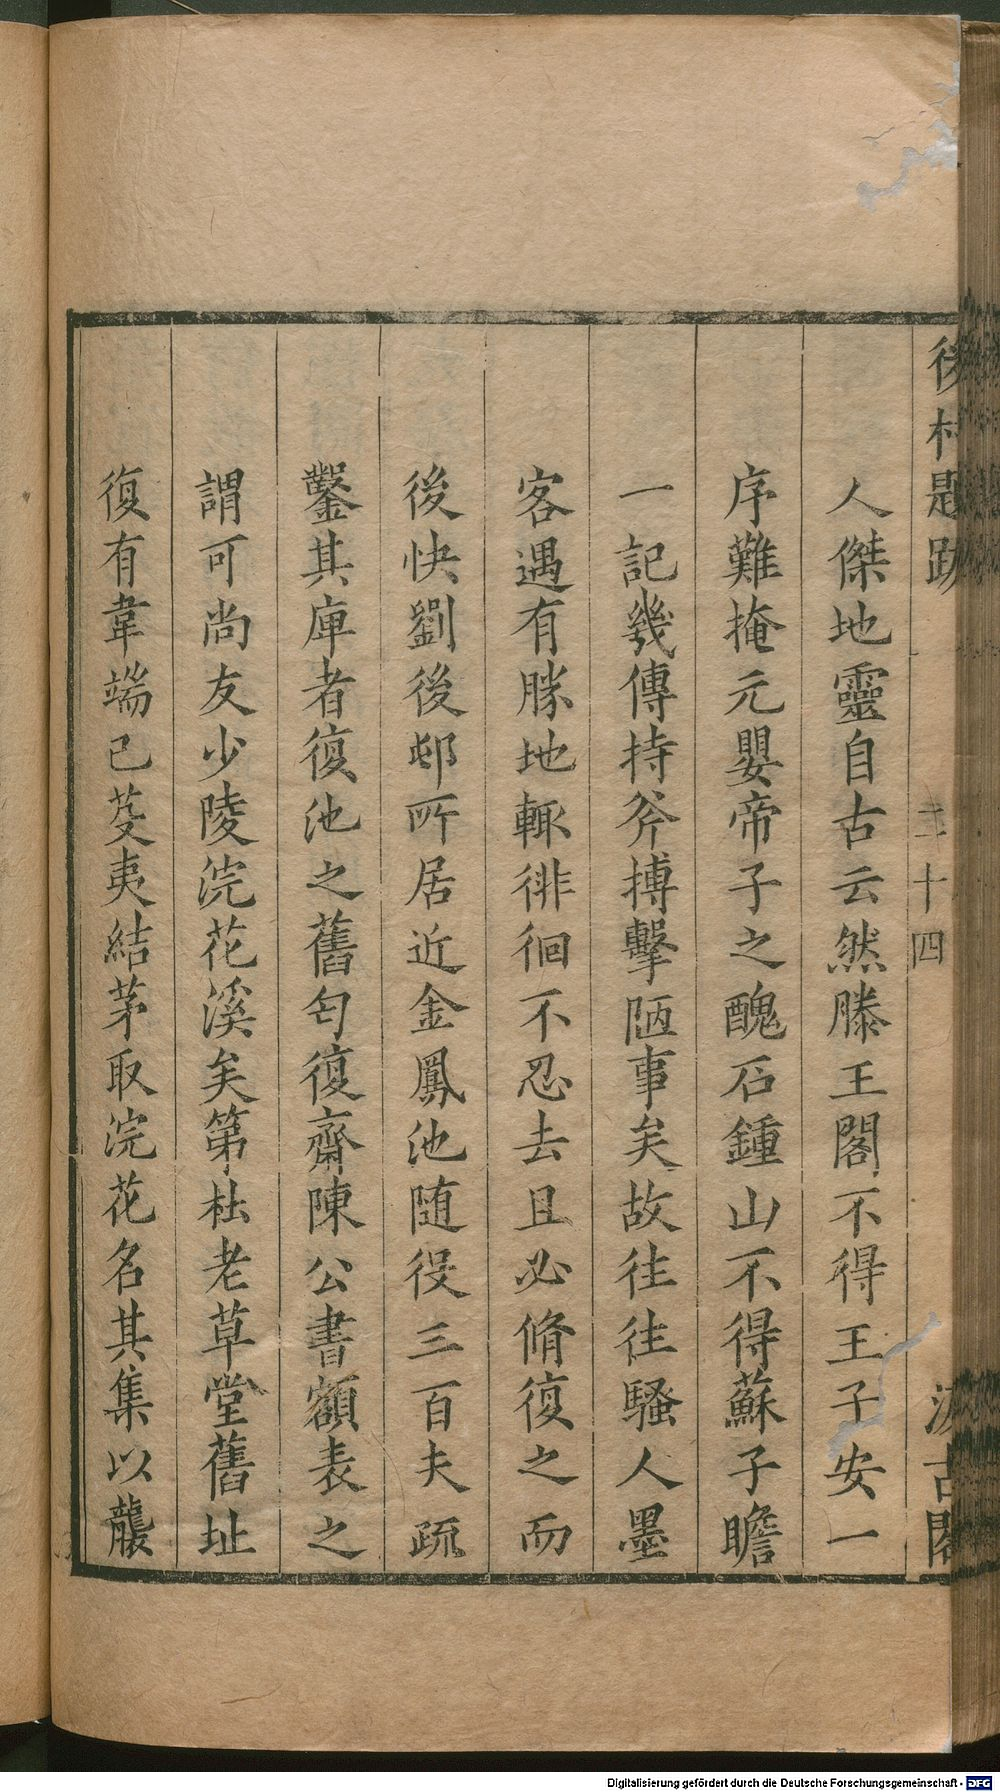 後村題跋 二十四 汲古閣
人傑地靈自古云然滕王閣不得王子安一
序難掩元嬰帝子之醜石鍾山不得蘇子瞻
一記幾傳持斧搏擊陋事矣故徃徃騷人墨
客遇有勝地輙徘徊不忍去且必脩復之而
後快劉後邨所居近金鳳池随役三百夫疏
鑿其庳者復池之舊匄復齋陳公書額表之
謂可尚友少陵浣花溪矣第杜老草堂舊址
復有韋端已芟夷結茅取浣花名其集以襲
Digitalisierung gefördert durch die Deutsche Forschungsgemeinschaft - DFG